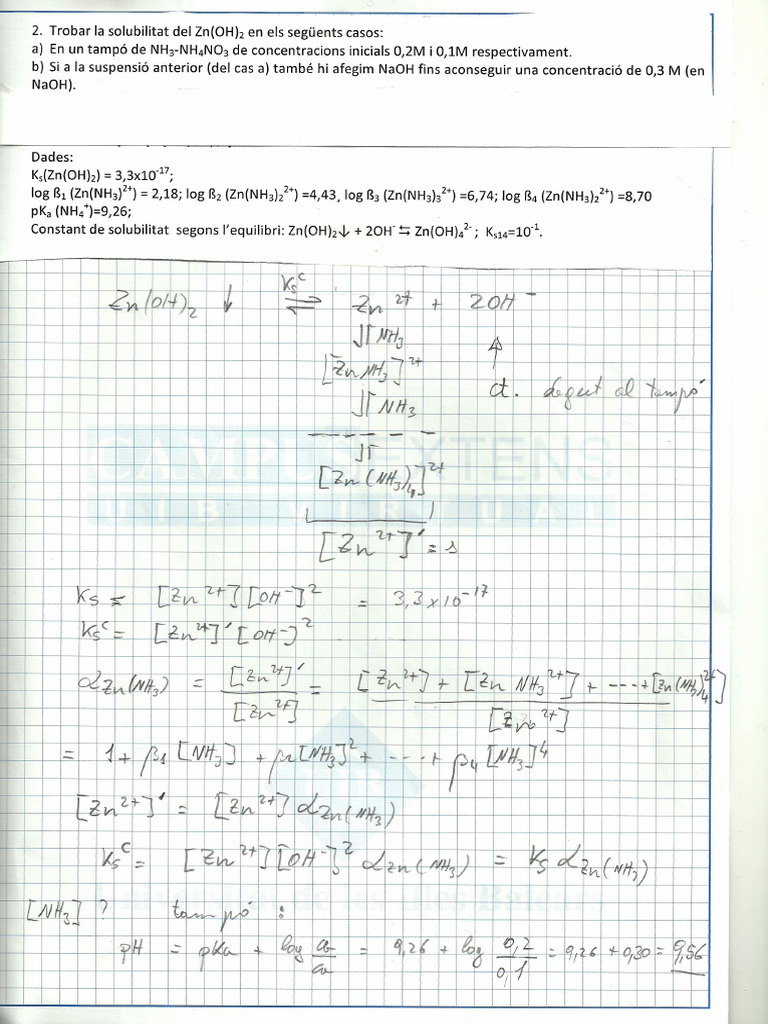 2. Trobar la solubilitat del Zn(OH)₂ en els següents casos:
a) En un tampó de NH₃-NH₄NO₃ de concentracions inicials 0,2M i 0,1M respectivament.
b) Si a la suspensió anterior (del cas a) també hi afegim NaOH fins aconseguir una concentració de 0,3 M (en
NaOH).
Dades:
Kₛ(Zn(OH)₂) = 3,3x10⁻¹⁷;
log ß₁ (Zn(NH₃)²⁺) = 2,18; log ß₂ (Zn(NH₃)₂²⁺) =4,43, log ß₃ (Zn(NH₃)₃²⁺) =6,74; log ß₄ (Zn(NH₃)₂²⁺) =8,70
pKₐ (NH₄⁺)=9,26;
Constant de solubilitat segons l'equilibri: Zn(OH)₂↓ + 2OH⁻ ⇆ Zn(OH)₄²⁻ ; Kₛ₁₄=10⁻¹.
Zn(OH)₂ ↓ ⇌ Ksᶜ Zn²⁺ + 2OH⁻
⇃↾ NH₃
[Zn NH₃]²⁺
⇃↾ NH₃
ct. degut al tampó
⇃↾
[Zn(NH₃)₄]²⁺
CAMPUS EXTENS
UIB VIRTUAL
[Zn²⁺]' = s
Ks = [Zn²⁺][OH⁻]² = 3,3x10⁻¹⁷
Ksᶜ = [Zn²⁺]'[OH⁻]²
αZn(NH₃) = [Zn²⁺]' / [Zn²⁺] = [Zn²⁺] + [Zn NH₃²⁺] + ---- + [Zn(NH₃)₄²⁺] / [Zn²⁺]
= 1 + β₁ [NH₃] + β₂[NH₃]² + ---- + β₄ [NH₃]⁴
[Zn²⁺]' = [Zn²⁺] αZn(NH₃)
Ksᶜ = [Zn²⁺][OH⁻]² αZn(NH₃) = Ks αZn(NH₃)
[NH₃] ? tampó :
pH = pKa + log Cb/Ca = 9,26 + log 0,2/0,1 = 9,26 + 0,30 = 9,56